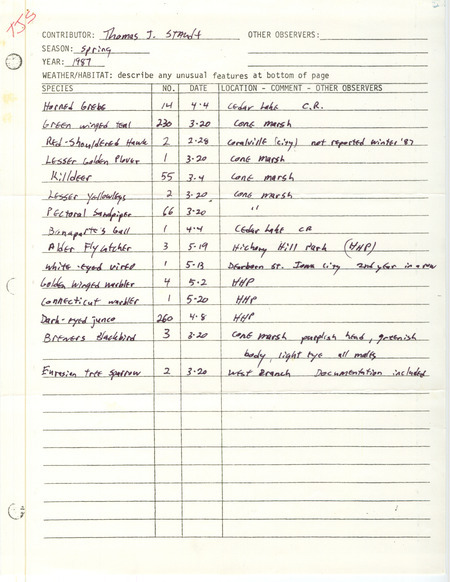 TJS
CONTRIBUTOR: Thomas J. Staudt OTHER OBSERVERS:
SEASON: Spring
YEAR: 1987
WEATHER/HABITAT: describe any unusual features at bottom of page
SPECIES NO. DATE LOCATION - COMMENT - OTHER OBSERVERS
Horned Grebe 14 4-4 Cedar Lake C.R.
Green winged teal 230 3-20 Cone marsh
Red-Shouldered Hawk 2 2-28 Coralville (city) not reported winter '87
Lesser Golden Plover 1 3-20 Cone marsh
Killdeer 55 3-4 Cone marsh
Lesser Yellowlegs 2 3-20 Cone marsh
Pectoral Sandpiper 66 3-20 "
Bonaparte's Gull 1 4-4 Cedar Lake CR
Alder Flycatcher 3 5-19 Hickory Hill Park (HHP)
White-eyed vireo 1 5-13 Dearborn St. Iowa City 2nd year in a row
Golden winged warbler 4 5-2 HHP
Connecticut warbler 1 5-20 HHP
Dark-eyed junco 260 4-8 HHP
Brewers Blackbird 3 3-20 Cone marsh purplish head, greenish
body, light eye all males
Eurasian tree sparrow 2 3-20 West Branch Documentation included